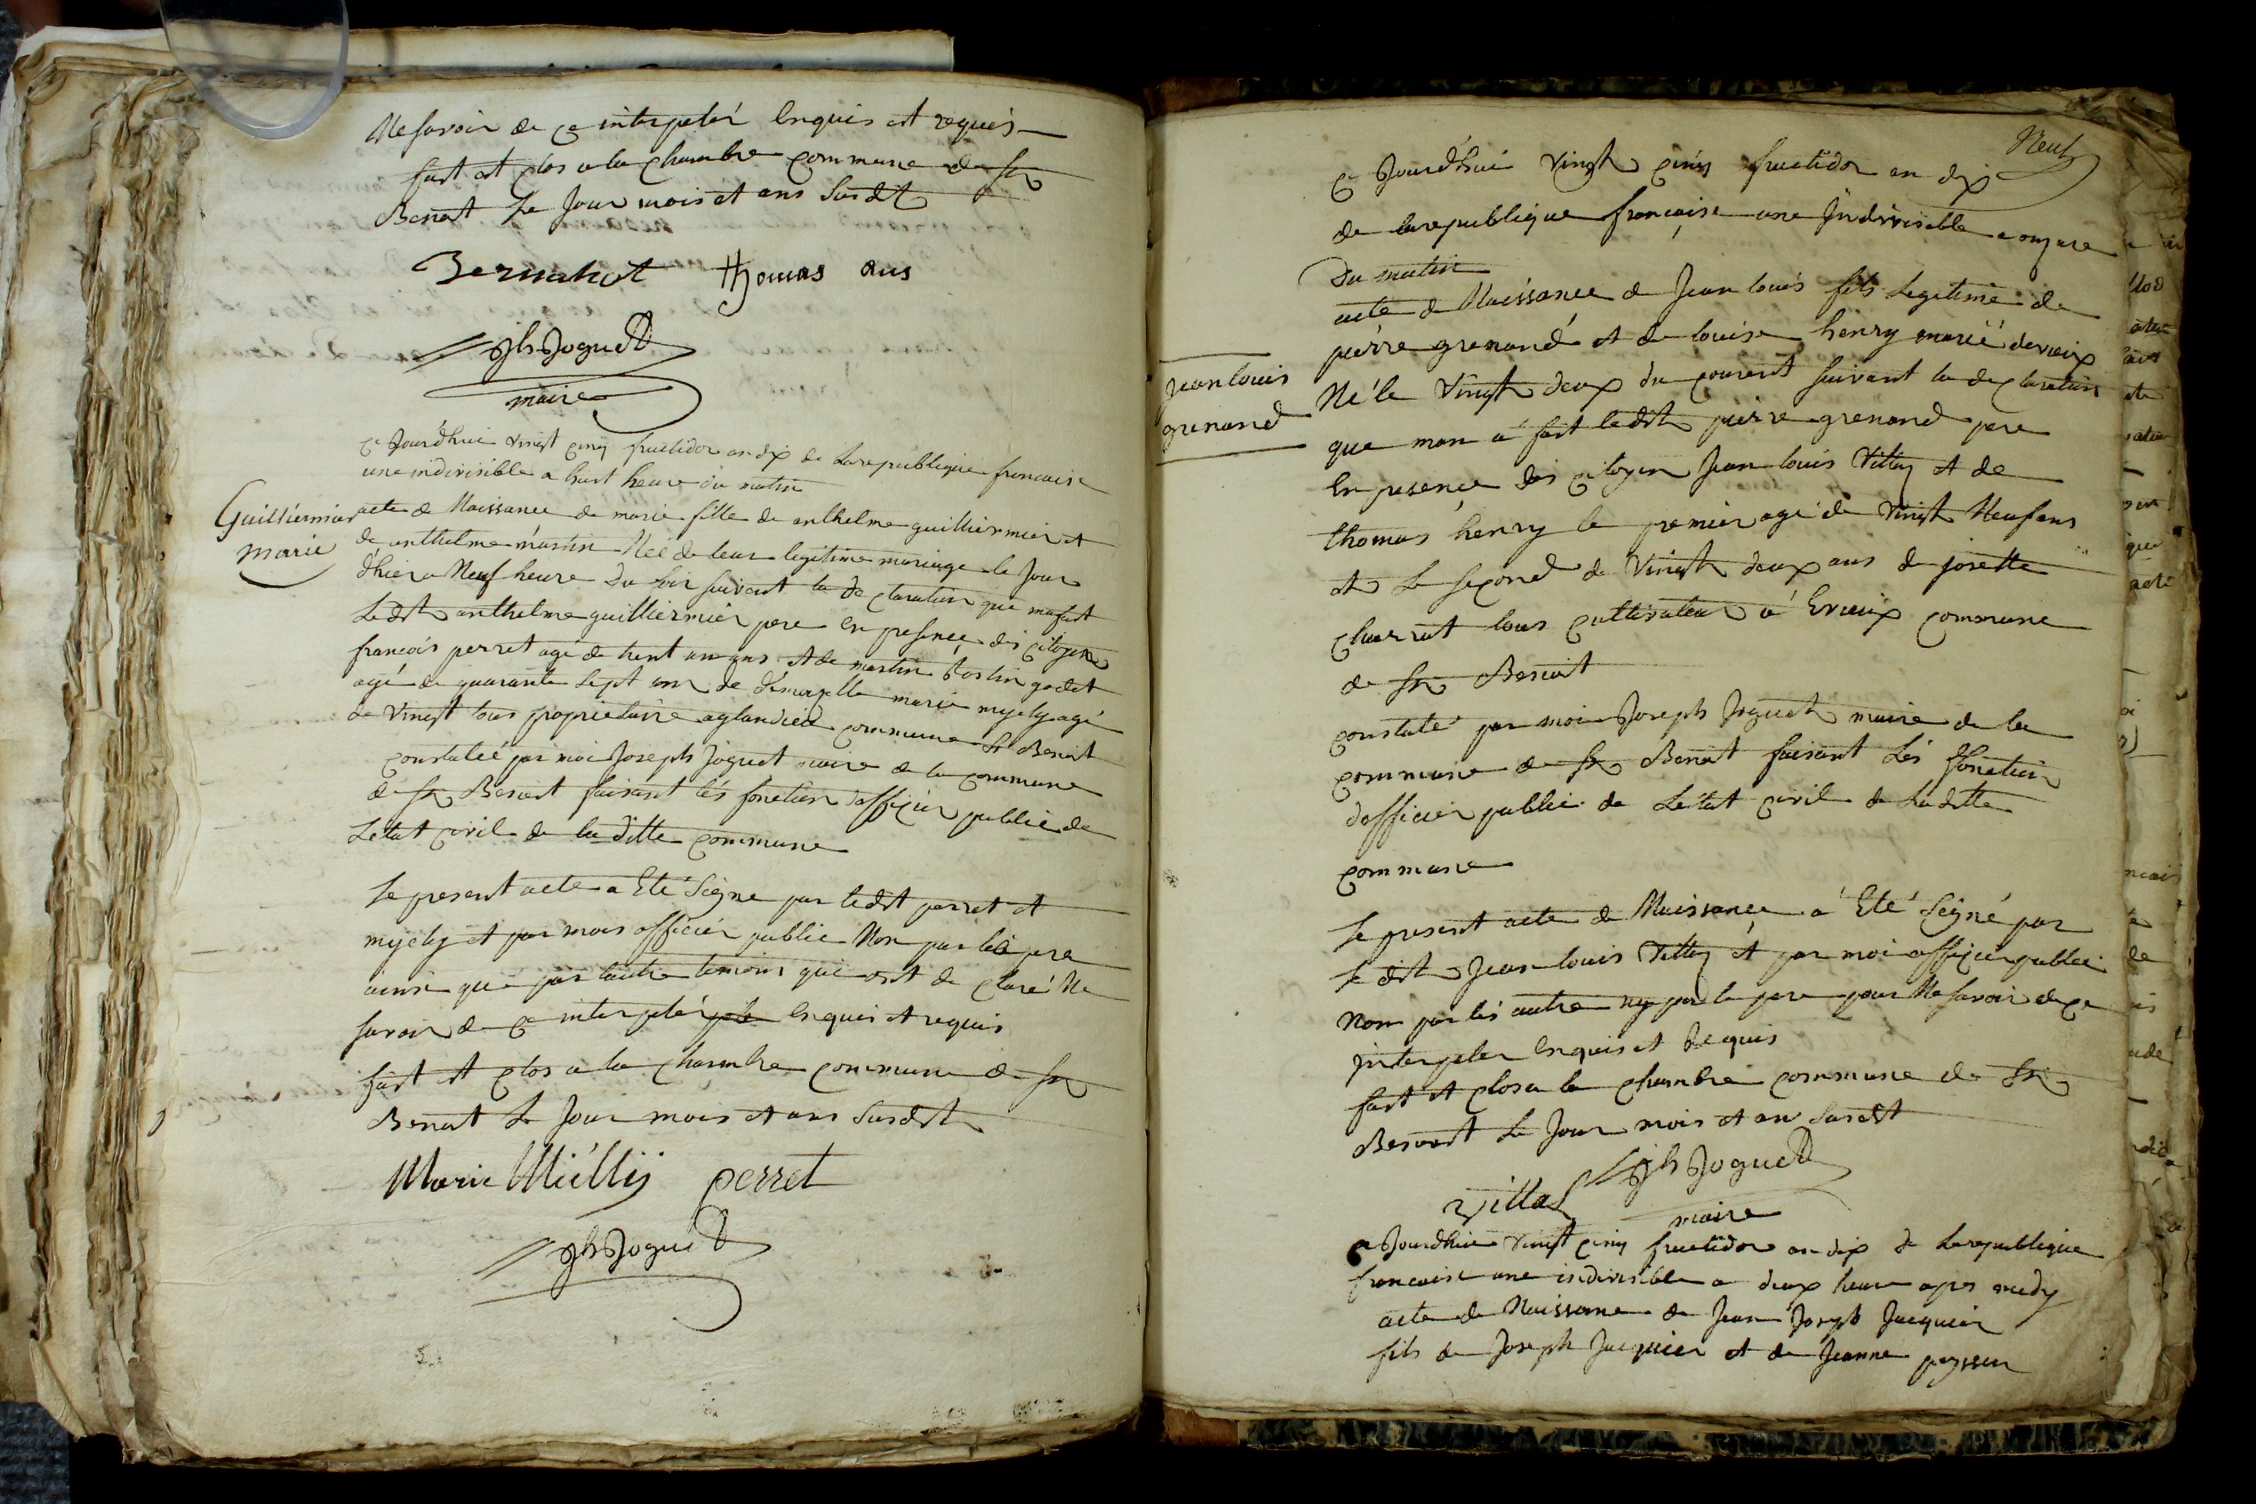 Ne savoir de ce interpelé Enquis et requis
fait et clos a la chambre commune de St
Benoit Le Jour mois et ans Susdt
Thomas
Jh Joguet
maire
Ce Jourdhui vingt cinq fructidor an dix de Larepublique francaise
une indivisible a huit heure du matin
Guilliermier
marie
acte de Naissance de marie fille de anthelme guilliermier et
de anthelme martin Née de leur legitime mariage le Jour
d'hier a Neuf heure du soir suivant la declaration que ma fait
Ledit anthelme guilliermier pere En presence des citoyens
francois perret agé de trent un ans et de martin goddet
agé de quarante sept ans de demoizelle marie myely agé
de vingt tous proprietaire aglandieu commune St Benoit
constateé par moi Joseph Joguet maire de la commune
de St Benoit faisant lés fonction dofficier public de
Letat civil de la ditte commune
Le present acte a Eté Signe par ledit perret et
myely et par mois officier public Non par le pere
ainsi que par lautre temoins que ont declaré Ne
savoir de ce interpelér Enquis et requis
fait et clos a la chambre commune de St
Benoit Le Jour mois et ans Susdit
Marie Miéllij perret
Jh Joguet
Neuf
Ce Jourd'hui vingt cinq fructidor an dix
de larepublique françaisse une Jndivisible a onzure
Du matin
acte de Naissance de Jean louis fils Legitime de
piérre grenand et de louise hénry marié devieix
Jean louis
grenand
Né le vingt deux du courant suivant la declaration
que man a fait ledit pierre grenand pere
En presence des citoyen Jean louis Villaz et de
thomas hénry le premier agé de vingt Neuf ans
et Le second de vingt deux ans de josette
charrut tous cultivateur á Evieix commune
de St Benoit
constaté par moi Joseph Joguet maire de la
commune de St Benoit faisant Lés fonction
dofficier public de Létat civil de Laditte
commune
Le present acte de Naissance a Eté Signé par
Le dit Jean louis Villaz et par moi officier public
Non par lés autre ny par le pere pour Ne savoir de ce
Jnterpeler Enquis et Requis
fait et closa la chambre commune de St
Benoit Le Jour mois et an Susdit
Jh Joguet
Villaz
maire
Ce Jourdhui vingt cinq fructidor an dix de Larepublique
francaise une indivisible a deux heure apres midy
acte de Naissance de Jean Joseph Jacquier
fils de Joseph Jacquier et de Jeanne